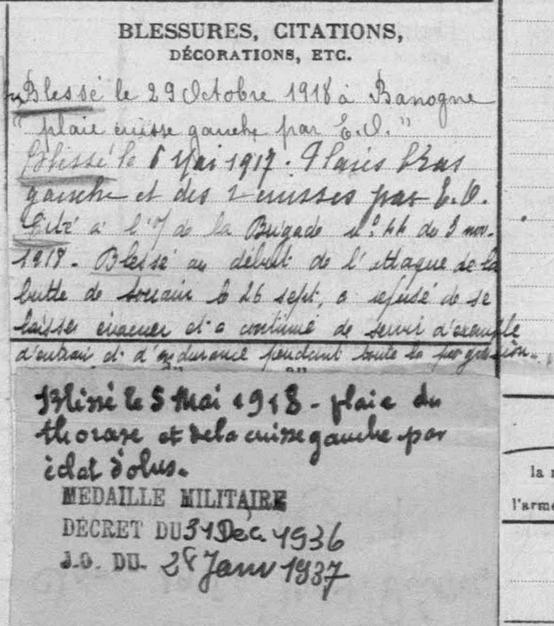 BLESSURES, CITATIONS,
DÉCORATIONS, ETC.
Blessé le 29 Octobre 1918 à Banogne
"plaie cuisse gauche par E.O."
Blessé le 6 Mai 1917. Plaies bras
gauche et des 2 cuisses par E.O.
Cité à l'O de la Brigade n° 44 du 3 nov.
1918. Blessé au début de l'attaque de la
butte de Souain le 26 sept, a refusé de se
laisser évacuer et a continué de servir d'exemple
d'entrain et d'endurance pendant toute la progression.
Blessé le 5 Mai 1918 - plaie du
thorax et de la cuisse gauche par
éclat d'obus.
MEDAILLE MILITAIRE
DÉCRET DU 31 Déc. 1936
J.O. DU. 28 Janv 1937
la
l'arm